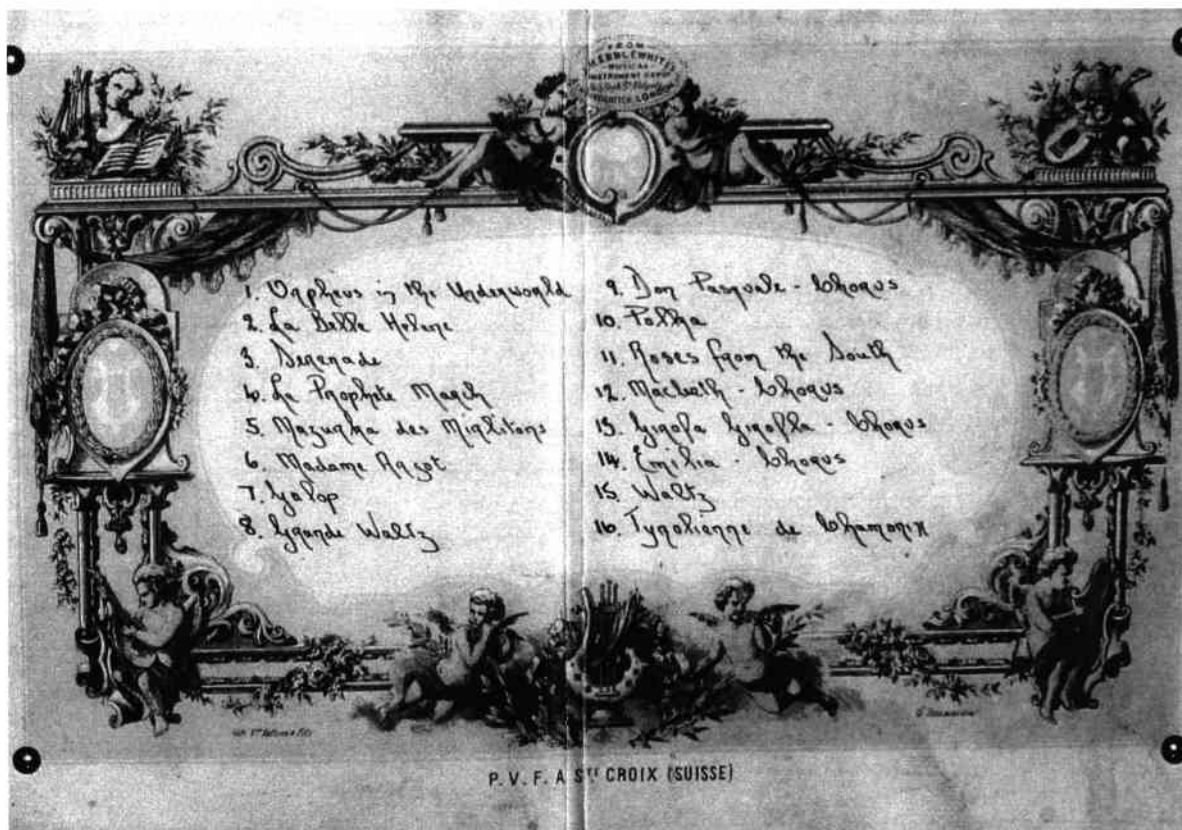 FROM
KEBBLEWHITE
MUSICAL
INSTRUMENT DEPOT
LONDON
1. Orpheus in the Underworld
2. La Belle Helene
3. Serenade
4. La Prophete March
5. Mazurka des Mirlitons
6. Madame Angot
7. Galop
8. Grande Waltz
9. Don Pasquale - Chorus
10. Polka
11. Roses from the South
12. Macbeth - Chorus
13. Girofa Girofla - Chorus
14. Emilia - Chorus
15. Waltz
16. Tyrolienne de Chamonix
P. V. F. A STE CROIX (SUISSE)